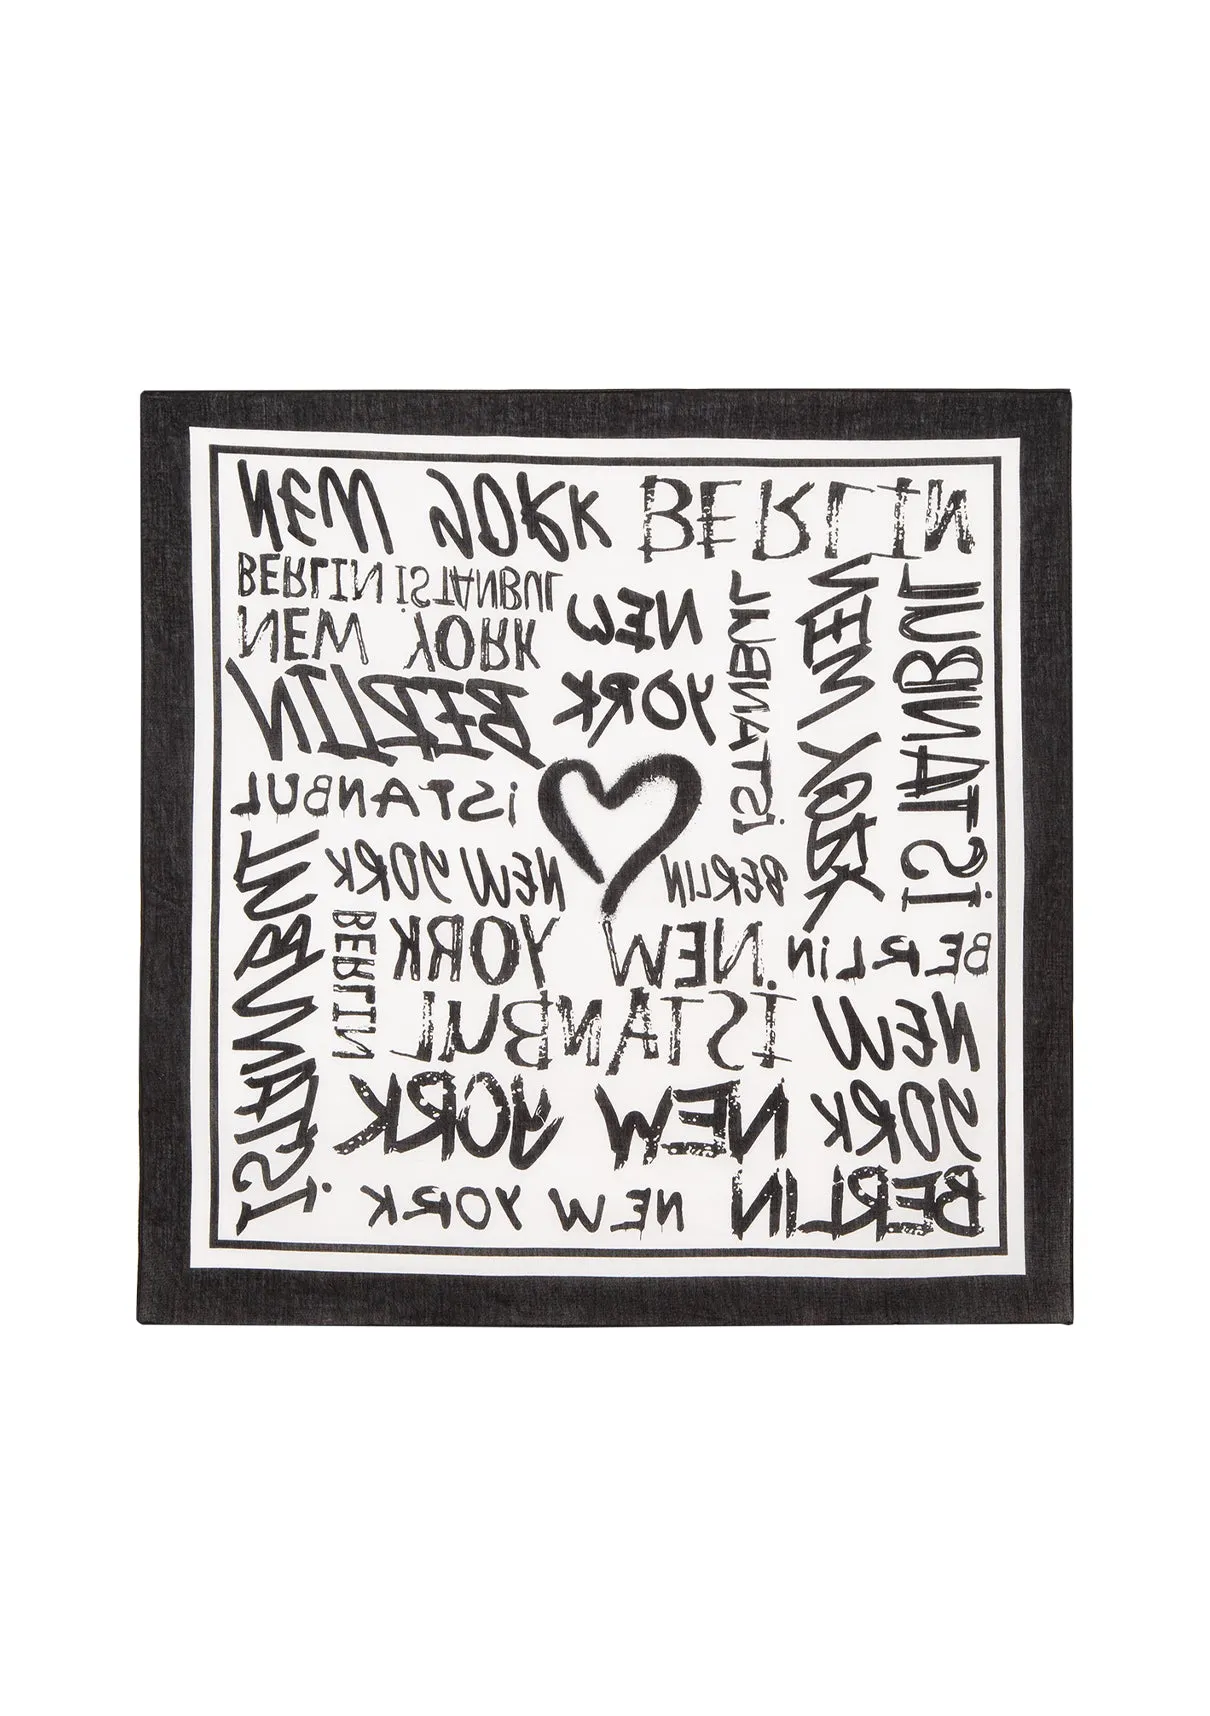 NEW YORK BERLIN
BERLIN İSTANBUL
NEW YORK
NEW
YORK
İSTANBUL
NEW YORK
İSTANBUL
BERLIN
İSTANBUL
İSTANBUL
NEW YORK
BERLIN
BERLIN
NEW YORK
BERLIN
İSTANBUL
NEW
YORK
NEW YORK
NEW YORK
BERLIN